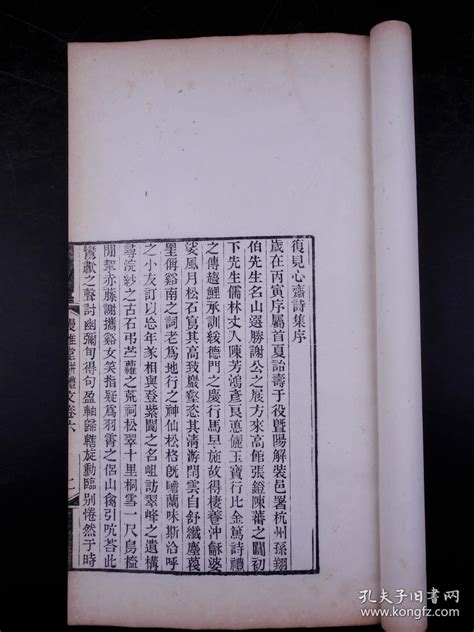 復見心齋詩集序
歲在丙寅序屬首夏詒壽于役暨陽解裝邑署杭州孫翔
伯先生名山選勝謝公之展方來高館張鐙陳蕃之闥初
下先生儒林丈人陳芳鴻彥良悳儷玉寶行比金篤詩禮
之傳趨鯉承訓綏德門之慶行馬早施故得棲養沖穌婆
娑風月松石寫其高致巖壑恣其清游雲自舒纖塵莫
里偁谿南之詞老為地行之神仙松格旣晴蘭味斯洽呼
之小友訂以忘年遂相與登紫閬之名岨訪翠峰之遺構
尋浣紗之古石弔苧蘿之荒祠松翠十里桐雲一尺鳥檻
閒挈赤藤謝攜谿女笑指疑為羽蓍之侶山禽引吭荅此
鸞獻之聲討幽彌旬得句盈軸歸轄旋動臨別惓然于時
縵雅堂駢體文卷六
二
孔夫子旧书网
www.kongfz.com